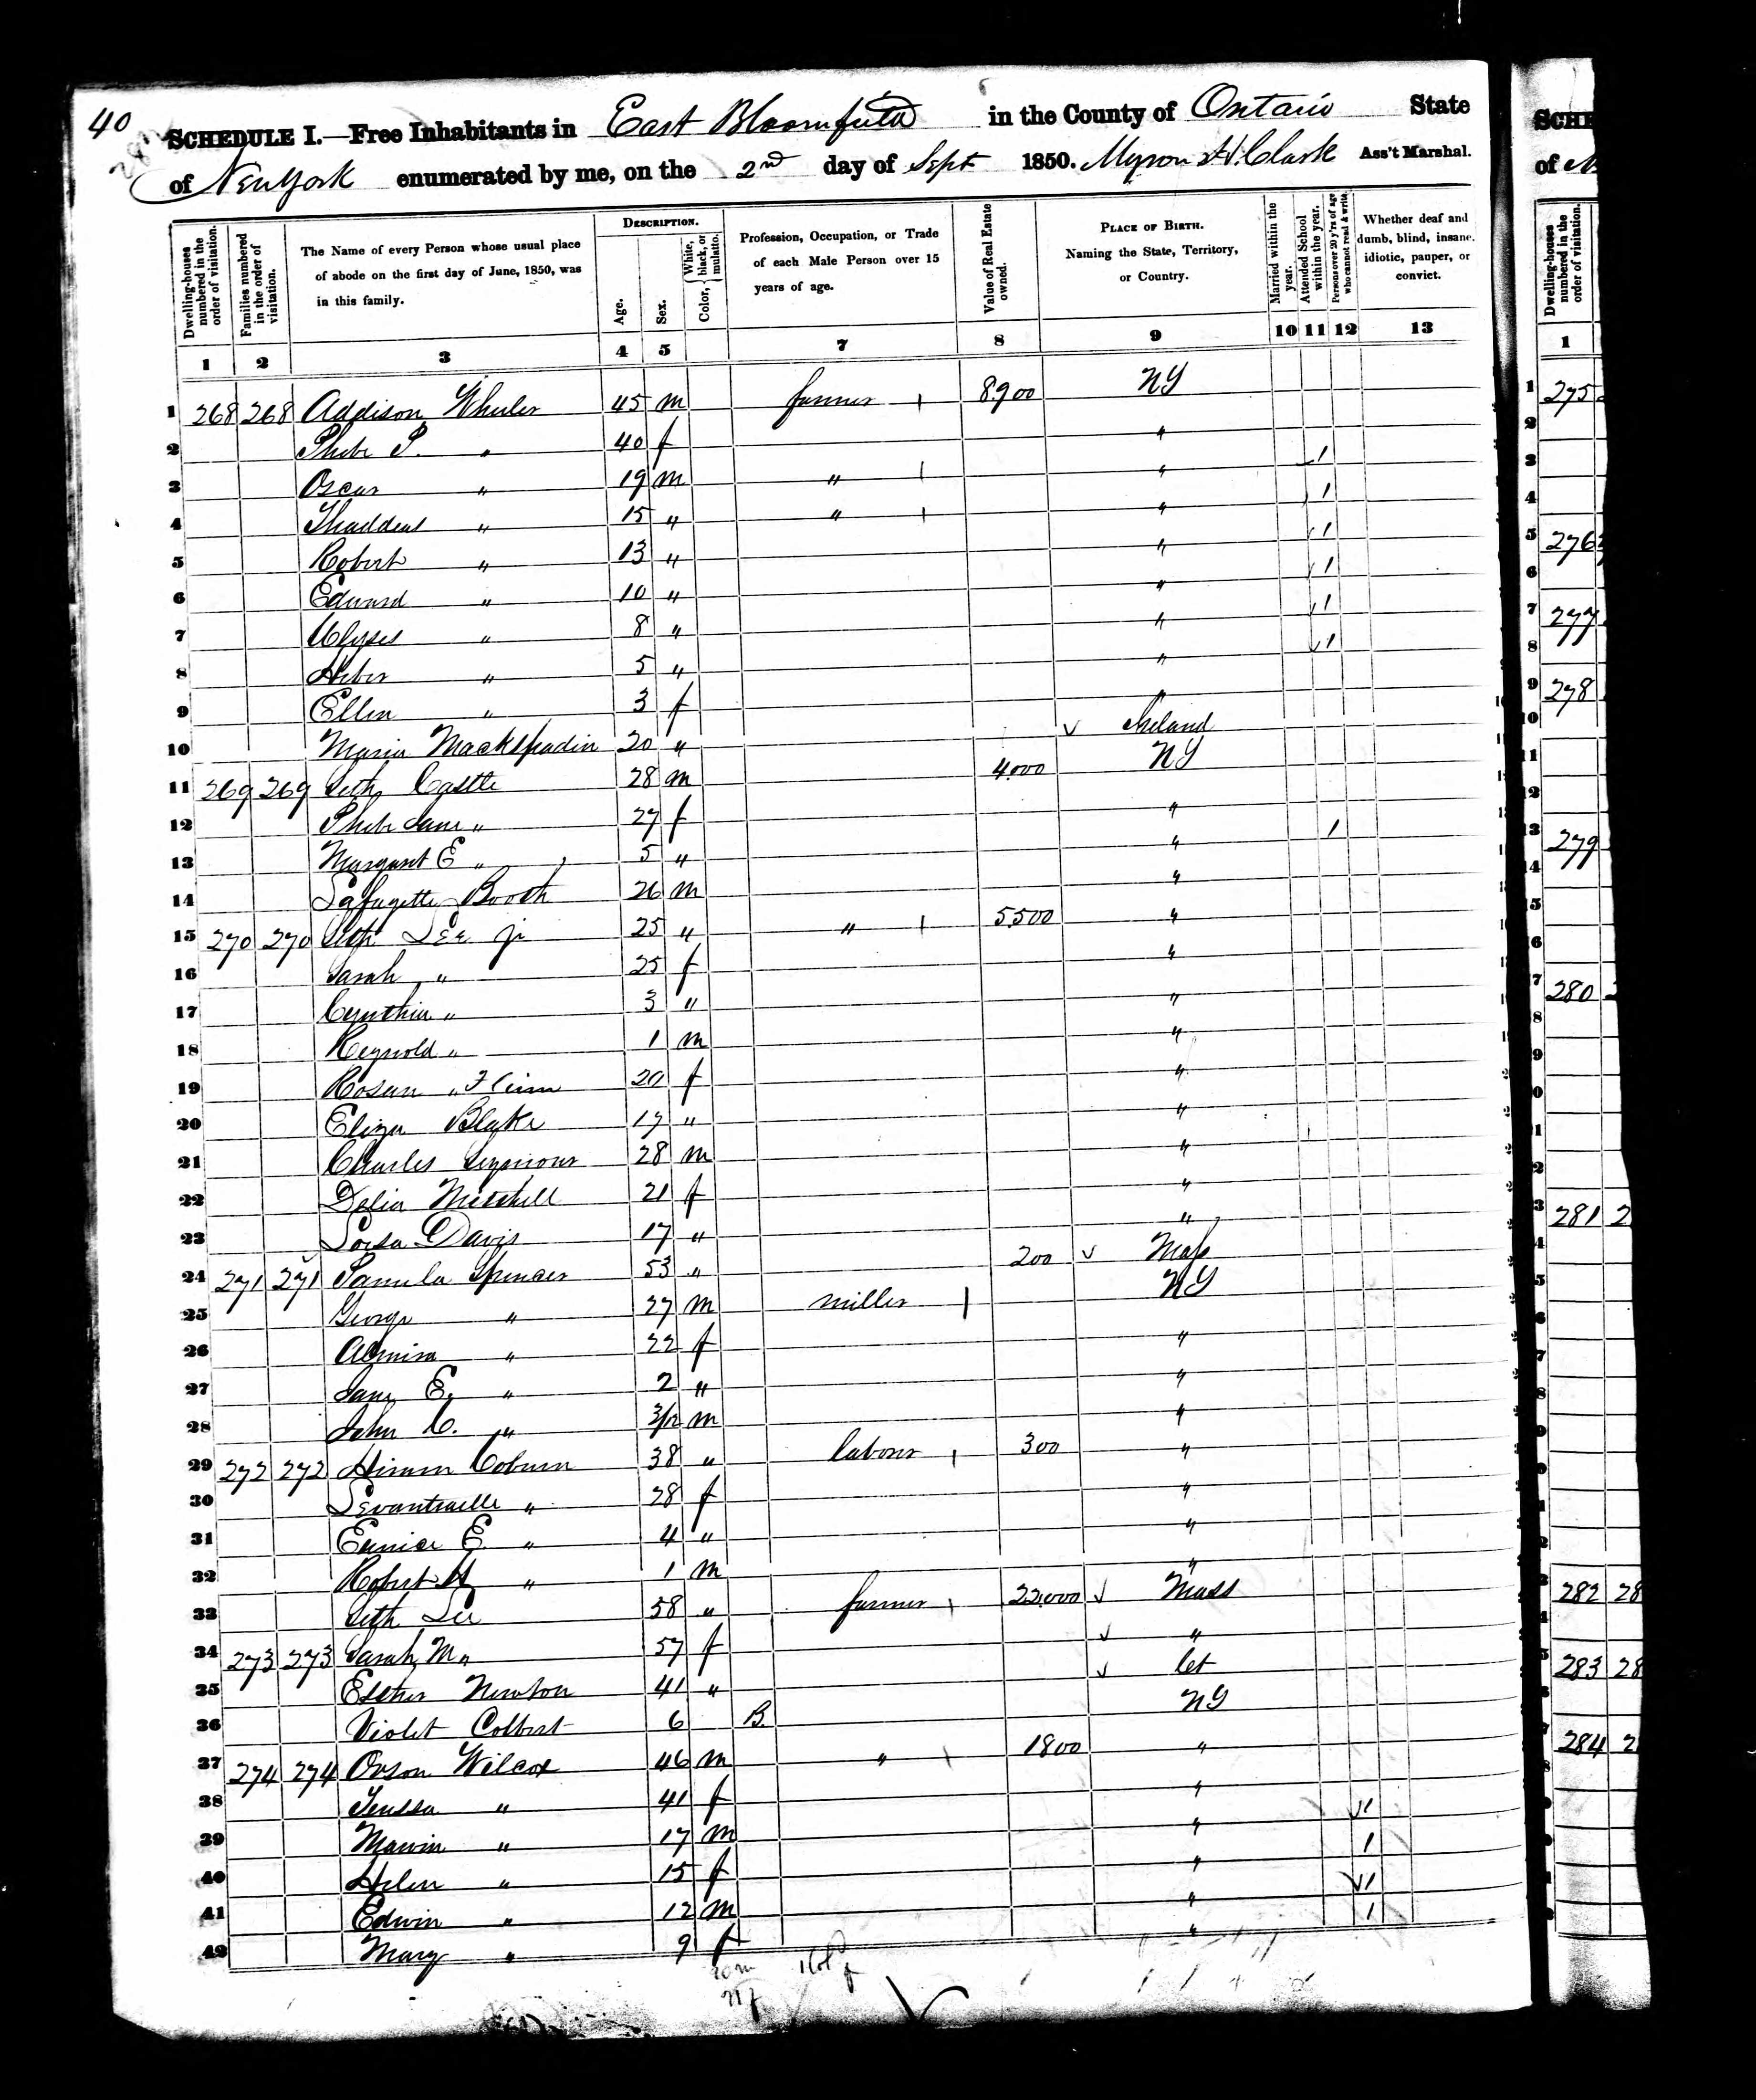 40
SCHEDULE I.—Free Inhabitants in East Bloomfield in the County of Ontario State
of New York enumerated by me, on the 2nd day of Sept 1850. Myron H. Clark Ass't Marshal.
Dwelling-houses numbered in the order of visitation.
Families numbered in the order of visitation.
The Name of every Person whose usual place of abode on the first day of June, 1850, was in this family.
DESCRIPTION.
Age.
Sex.
Color, White, black, or mulatto.
Profession, Occupation, or Trade of each Male Person over 15 years of age.
Value of Real Estate owned.
PLACE OF BIRTH. Naming the State, Territory, or Country.
Married within the year.
Attended School within the year.
Persons over 20 y'rs of age who cannot read & write.
Whether deaf and dumb, blind, insane, idiotic, pauper, or convict.
1 2 3 4 5 7 8 9 10 11 12 13
1 268 268 Addison Wheeler 45 m farmer 8900 NY
2 Phebe P. " 40 f "
3 Oscar " 19 m " " 1
4 Thaddeus " 15 " " " 1
5 Robert " 13 " " 1
6 Edward " 10 " " 1
7 Ulyses " 8 " " 1
8 Heber " 5 " " 1
9 Ellen " 3 f "
10 Maria Mackspadin 20 " Ireland
11 269 269 Seth Castle 28 m 4000 NY
12 Phebe Jane " 27 f "
13 Margaret E " 5 " " 1
14 Lafayette Booth 26 m "
15 270 270 Seth Lee jr 25 " " 5500 "
16 Sarah " 25 f "
17 Cynthia " 3 " "
18 Reynold " 1 m "
19 Rosan " 20 f "
20 Eliza Blake 17 " "
21 Charles Seymour 28 m "
22 Delia Mitchell 21 f "
23 Davis 17 " "
24 271 271 Pamela Spencer 53 " 200 Mass
25 George " 27 m miller NY
26 Almira " 22 f "
27 Jane E. " 2 " "
28 John C. " 3/12 m "
29 272 272 Hiram Coburn 38 " laborer 300 "
30 " 28 f "
31 Eunice E " 4 " "
32 Robert H " 1 m "
33 Seth Lee 58 " farmer 22,000 Mass
34 273 273 Sarah M " 57 f "
35 Esther Newton 41 " Ct
36 Violet Colbert 6 B. NY
37 274 274 Orson Wilcox 46 m " 1800 "
38 " 41 f "
39 Marvin " 17 m " 1
40 Helen " 15 f " 1
41 Edwin " 12 m " 1
42 Mary " 9 f " 1
SCHE
of N
Dwelling-houses numbered in the order of visitation.
1
275
276
277
278
279
280 2
281 2
282 28
283 28
284 2